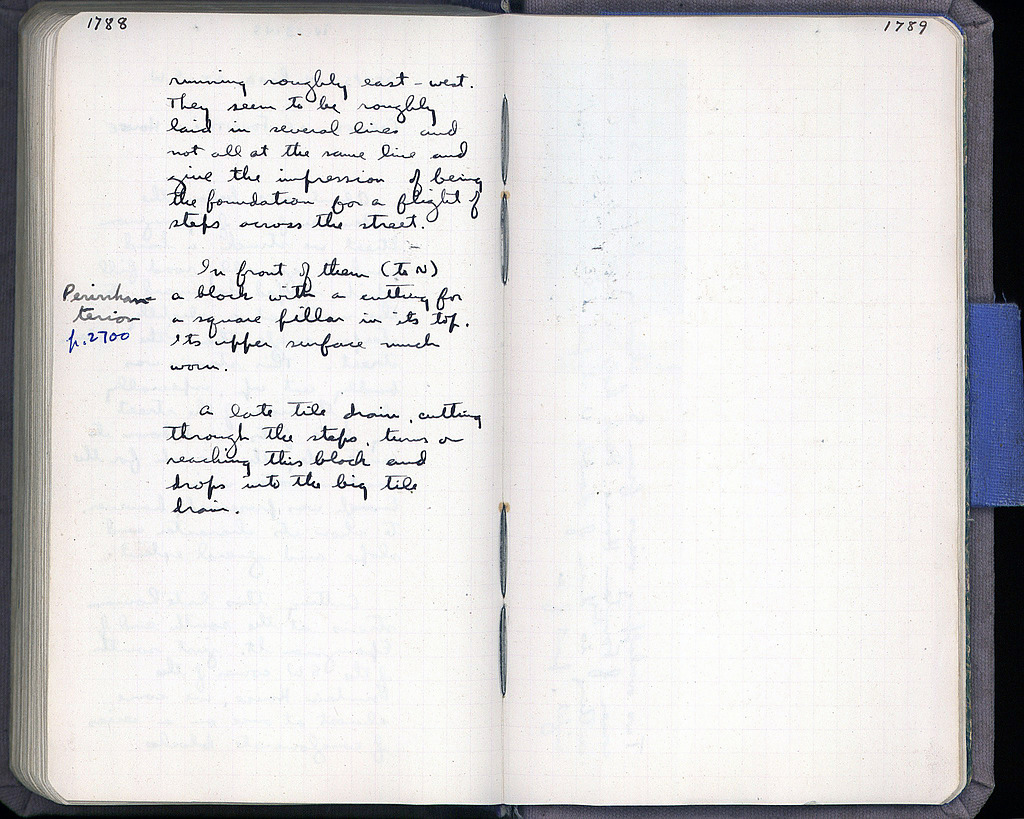 1788
running roughly east-west.
They seem to be roughly
laid in several lines and
not all at the same line and
give the impression of being
the foundation for a flight of
steps across the street.
In front of them (to N)
a block with a cutting for
a square pillar in its top.
Its upper surface much
worn.
Perirrhan-
terion
p.2700
A late tile drain, cutting
through the steps, turns on
reaching this block and
drops into the big tile
drain.
1789